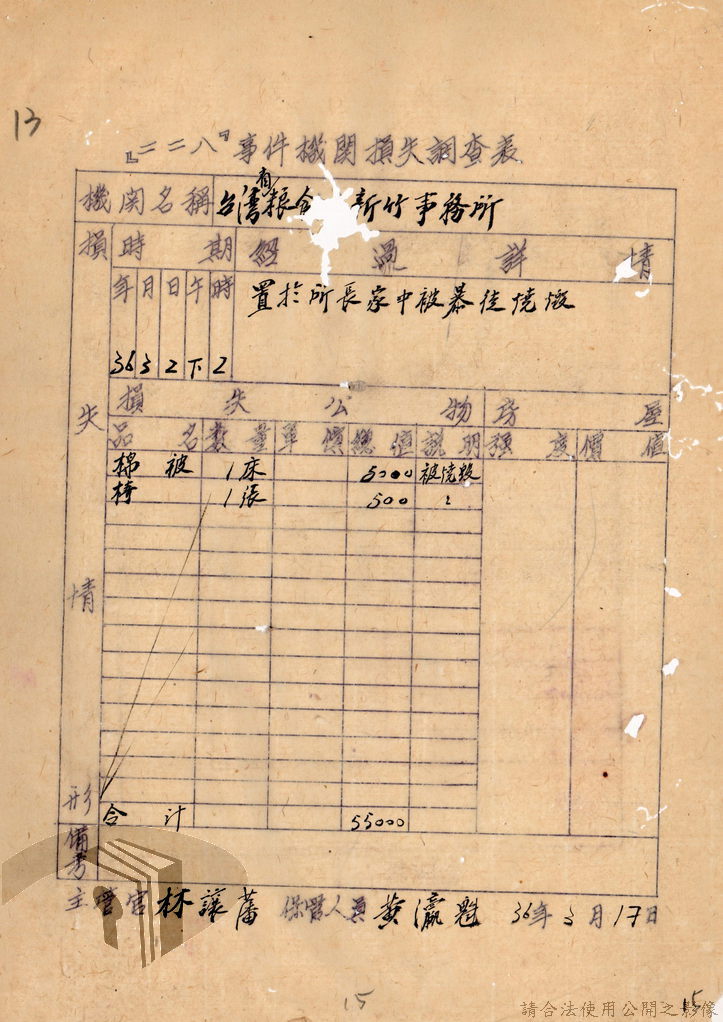 13
『二二八』事件機関損失調查表
機関名稱 台湾省粮 新竹事務所
損失情形
時期 經過詳情
年 月 日 午 時 置於所長家中被暴徒燒燬
36 3 2 下 2
損失公物 房屋
品名 数量 單價 總值 說明 强度 價值
棉被 1床 5000 被燒毀
椅 1張 500 〃
合计 55000
備考
主管官 林讓藩 保管人員 黄瀛魁 36年3月17日
15
15
請合法使用公開之影像